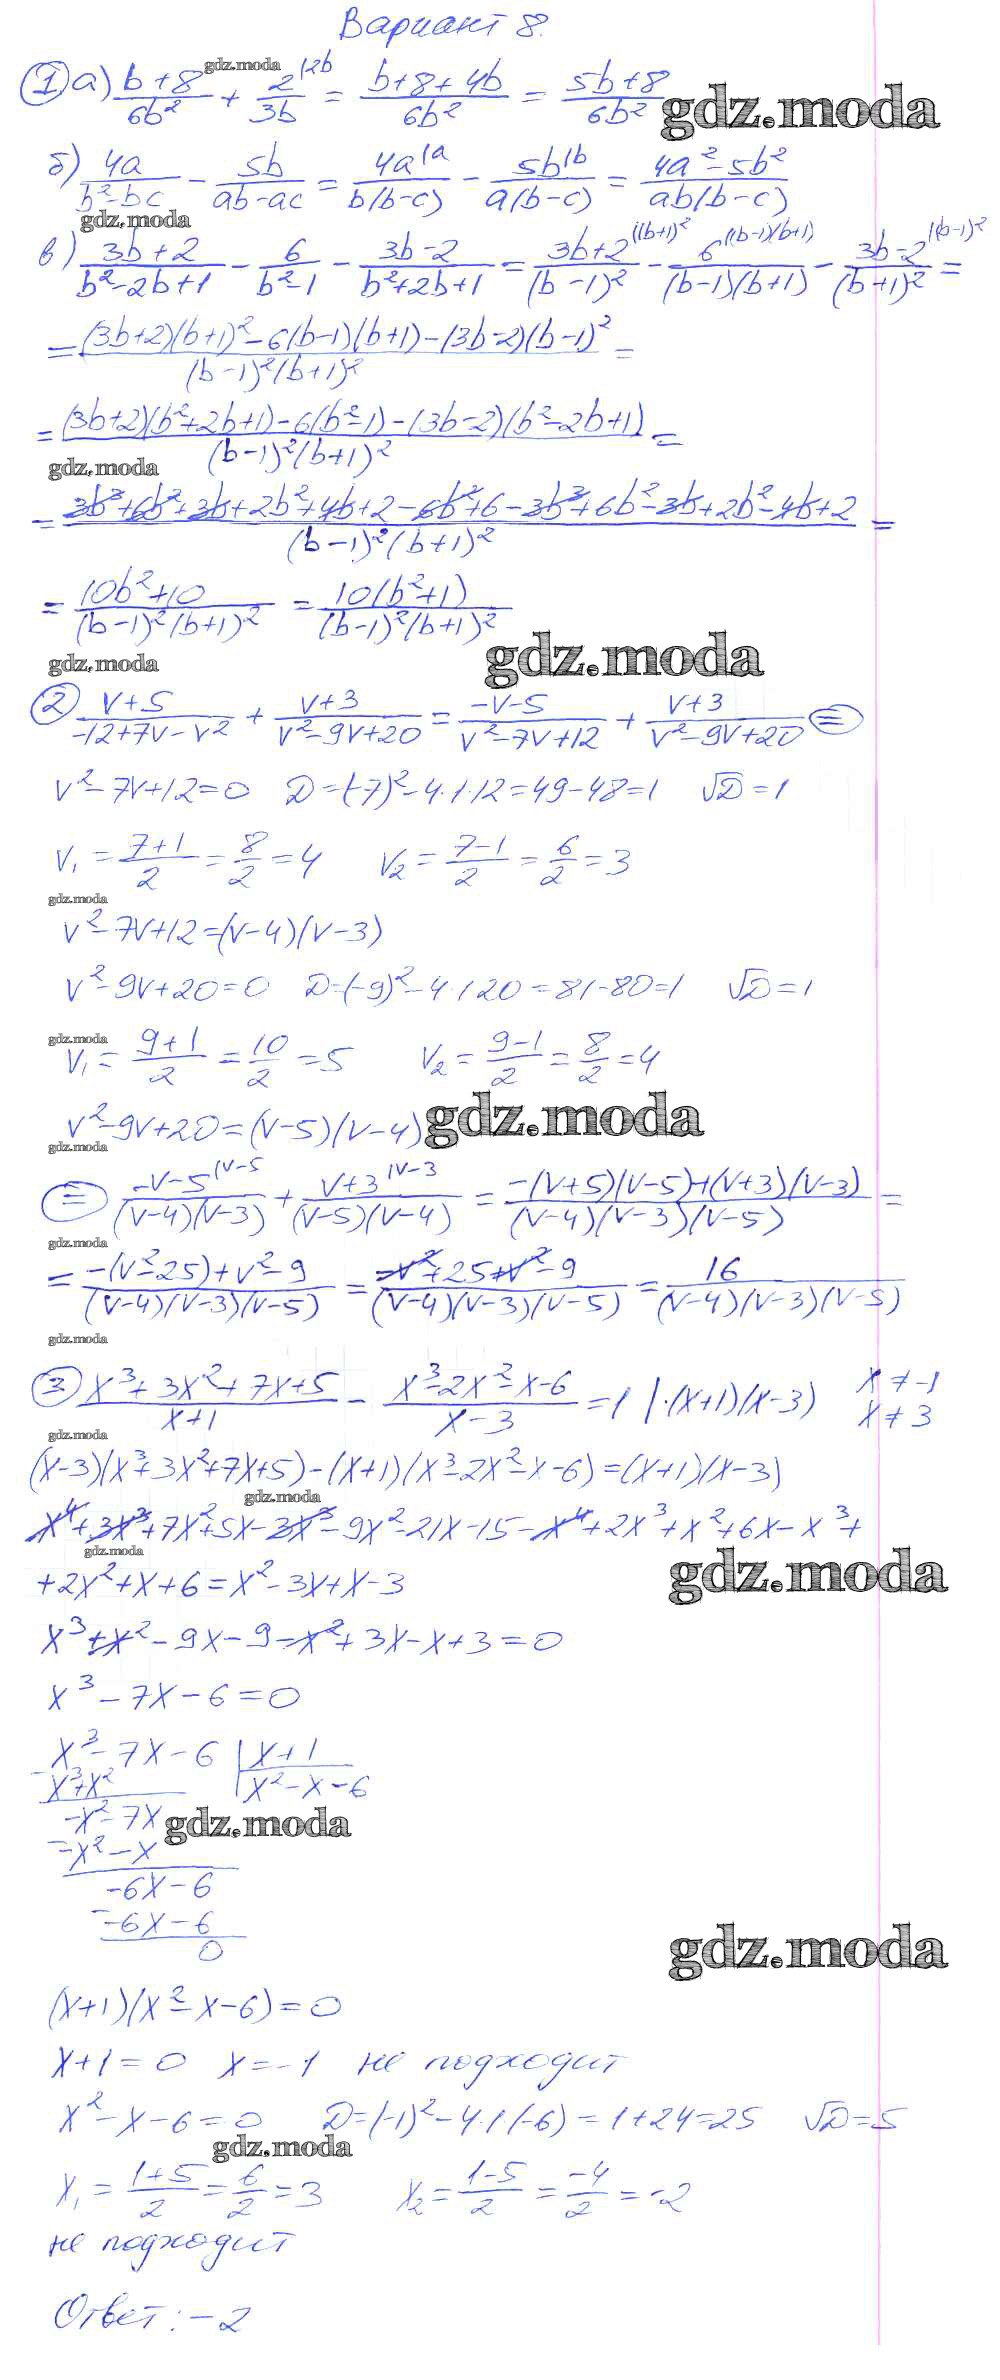 Вариант 8.
① а) (b+8)/(6b²) + 2^(|2b)/(3b) = (b+8+4b)/(6b²) = (5b+8)/(6b²)
gdz.moda
gdz.moda
б) 4a/(b²-bc) - 5b/(ab-ac) = 4a^(|a)/(b(b-c)) - 5b^(|b)/(a(b-c)) = (4a²-5b²)/(ab(b-c))
gdz.moda
в) (3b+2)/(b²-2b+1) - 6/(b²-1) - (3b-2)/(b²+2b+1) = (3b+2)^(|(b+1)²)/(b-1)² - 6^(|(b-1)(b+1))/((b-1)(b+1)) - (3b-2)^(|(b-1)²)/(b+1)² =
= ((3b+2)(b+1)²-6(b-1)(b+1)-(3b-2)(b-1)²)/((b-1)²(b+1)²) =
= ((3b+2)(b²+2b+1)-6(b²-1)-(3b-2)(b²-2b+1))/((b-1)²(b+1)²) =
gdz.moda
= (3b³+6b²+3b+2b²+4b+2-6b²+6-3b³+6b²-3b+2b²-4b+2)/((b-1)²(b+1)²) =
= (10b²+10)/((b-1)²(b+1)²) = 10(b²+1)/((b-1)²(b+1)²)
gdz.moda
gdz.moda
② (v+5)/(-12+7v-v²) + (v+3)/(v²-9v+20) = (-v-5)/(v²-7v+12) + (v+3)/(v²-9v+20) ⊜
v²-7v+12=0 D=(-7)²-4·1·12=49-48=1 √D=1
v₁ = (7+1)/2 = 8/2 = 4 v₂ = (7-1)/2 = 6/2 = 3
gdz.moda
v²-7v+12=(v-4)(v-3)
v²-9v+20=0 D=(-9)²-4·1·20=81-80=1 √D=1
gdz.moda
v₁ = (9+1)/2 = 10/2 = 5 v₂ = (9-1)/2 = 8/2 = 4
v²-9v+20=(v-5)(v-4)
gdz.moda
gdz.moda
⊜ (-v-5)^(|v-5)/((v-4)(v-3)) + (v+3)^(|v-3)/((v-5)(v-4)) = (-(v+5)(v-5)+(v+3)(v-3))/((v-4)(v-3)(v-5)) =
gdz.moda
= (-(v²-25)+v²-9)/((v-4)(v-3)(v-5)) = (-v²+25+v²-9)/((v-4)(v-3)(v-5)) = 16/((v-4)(v-3)(v-5))
gdz.moda
③ (x³+3x²+7x+5)/(x+1) - (x³-2x²-x-6)/(x-3) = 1 |·(x+1)(x-3) x≠-1
x≠3
gdz.moda
(x-3)(x³+3x²+7x+5)-(x+1)(x³-2x²-x-6)=(x+1)(x-3)
gdz.moda
x⁴+3x³+7x²+5x-3x³-9x²-21x-15-x⁴+2x³+x²+6x-x³+
gdz.moda
gdz.moda
+2x²+x+6=x²-3x+x-3
x³+x²-9x-9-x²+3x-x+3=0
x³-7x-6=0
x³-7x-6 |x+1
-x³+x² x²-x-6
-x²-7x
gdz.moda
-x²-x
-6x-6
-6x-6
0
gdz.moda
(x+1)(x²-x-6)=0
x+1=0 x=-1 не подходит
x²-x-6=0 D=(-1)²-4·1(-6)=1+24=25 √D=5
gdz.moda
x₁ = (1+5)/2 = 6/2 = 3 x₂ = (1-5)/2 = -4/2 = -2
не подходит
Ответ: -2